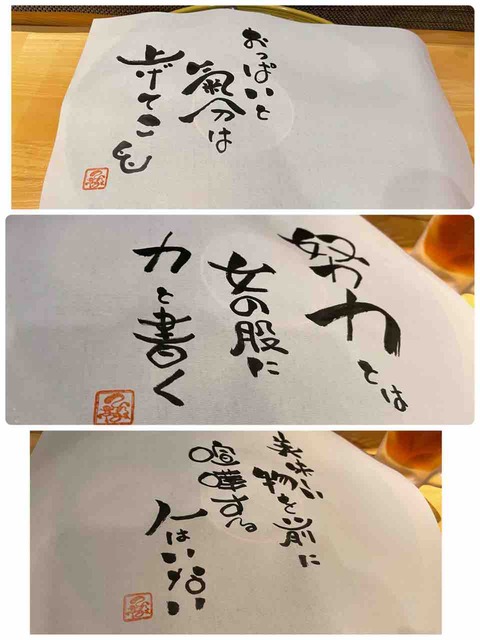 おっぱいと
氣分は
上げてこを
努力とは
女の股に
力と書く
美味い
物を前に
喧嘩する
人はいない